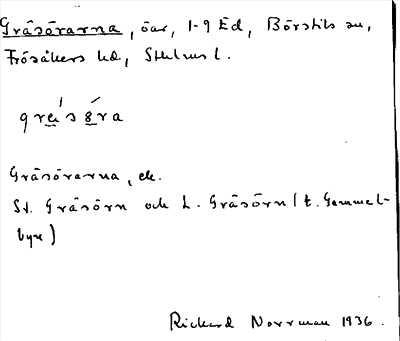 Gräsörarna, öar, 1-9 Ed, Börstils sn,
Frösåkers hd, Sthlms l.
gre̲ís ö̲́ra
Gräsörarna, ek.
St. Gräsörn och L. Gräsörn (t. Gammel-
byn)
Rickard Norrman 1936.